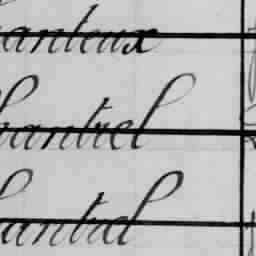 hanteux
hantrel
hantrel